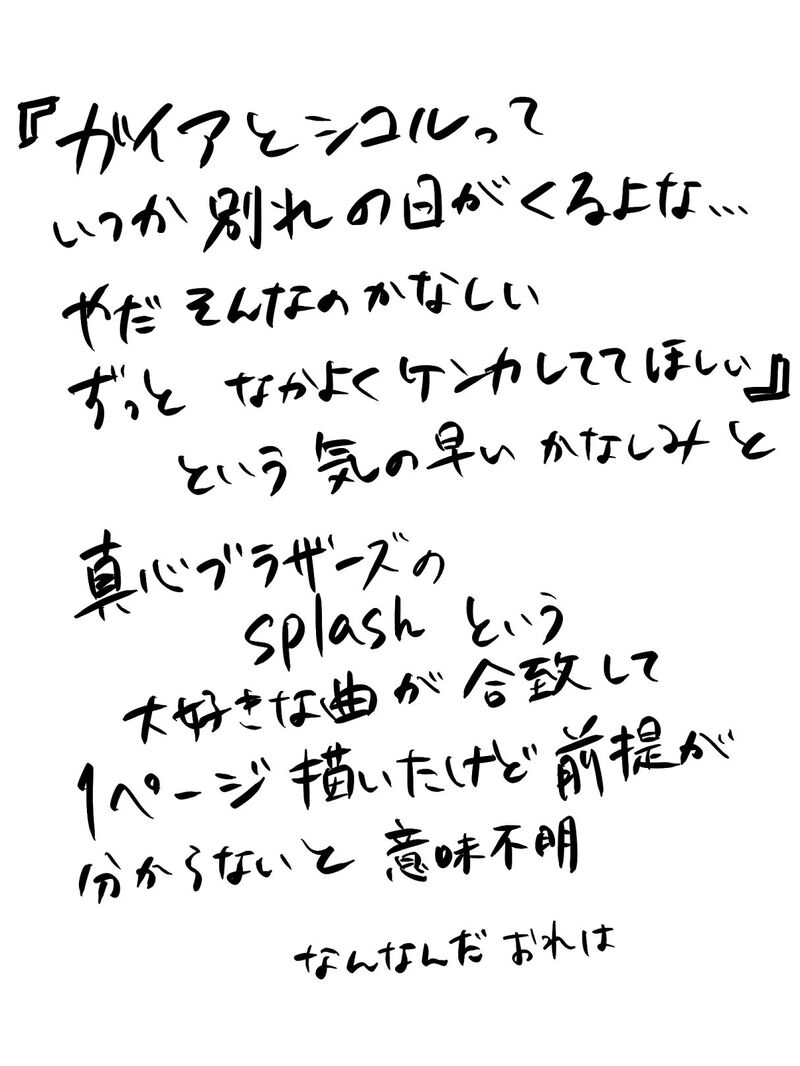 『ガイアとシコルって
いつか別れの日がくるよな…
やだ そんなのかなしい
ずっと なかよくケンカしててほしい』
という気の早いかなしみと
真心ブラザーズの
splash という
大好きな曲が合致して
1ページ描いたけど前提が
分からないと意味不明
なんなんだおれは